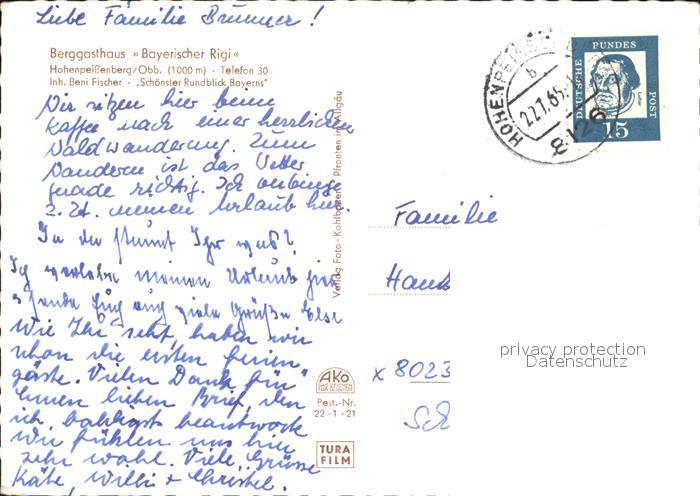 Liebe Familie Brunner!
Berggasthaus »Bayerischer Rigi«
Hohenpeißenberg/Obb. (1000 m) · Telefon 30
Inh. Beni Fischer · „Schönster Rundblick Bayerns"
Wir sitzen hier beim
Kaffee nach einer herrlichen
Waldwanderung. Zum
Wandern ist das Wetter
gerade richtig. Ich verbringe
z. Zt. meinen Urlaub hier.
Ich verlebe meinen Urlaub hier
sende Euch viele Grüße Else
Wie Ihr seht, haben wir
schon die ersten Ferien-
gäste. Vielen Dank für
Ihren lieben Brief, den
ich baldigst beantworte
Wir fühlen uns hier
sehr wohl. Viele Grüsse
Käte, Willi + Christel.
Verlag Foto-Kohlbauer, Pfronten im Allgäu
AKO
Pest.-Nr.
22 · 1 · 21
TURA
FILM
HOHENPEISSENBERG
b
22.7.65
8126
DEUTSCHE BUNDESPOST
15
Familie
Hans
X 8023
privacy protection
Datenschutz